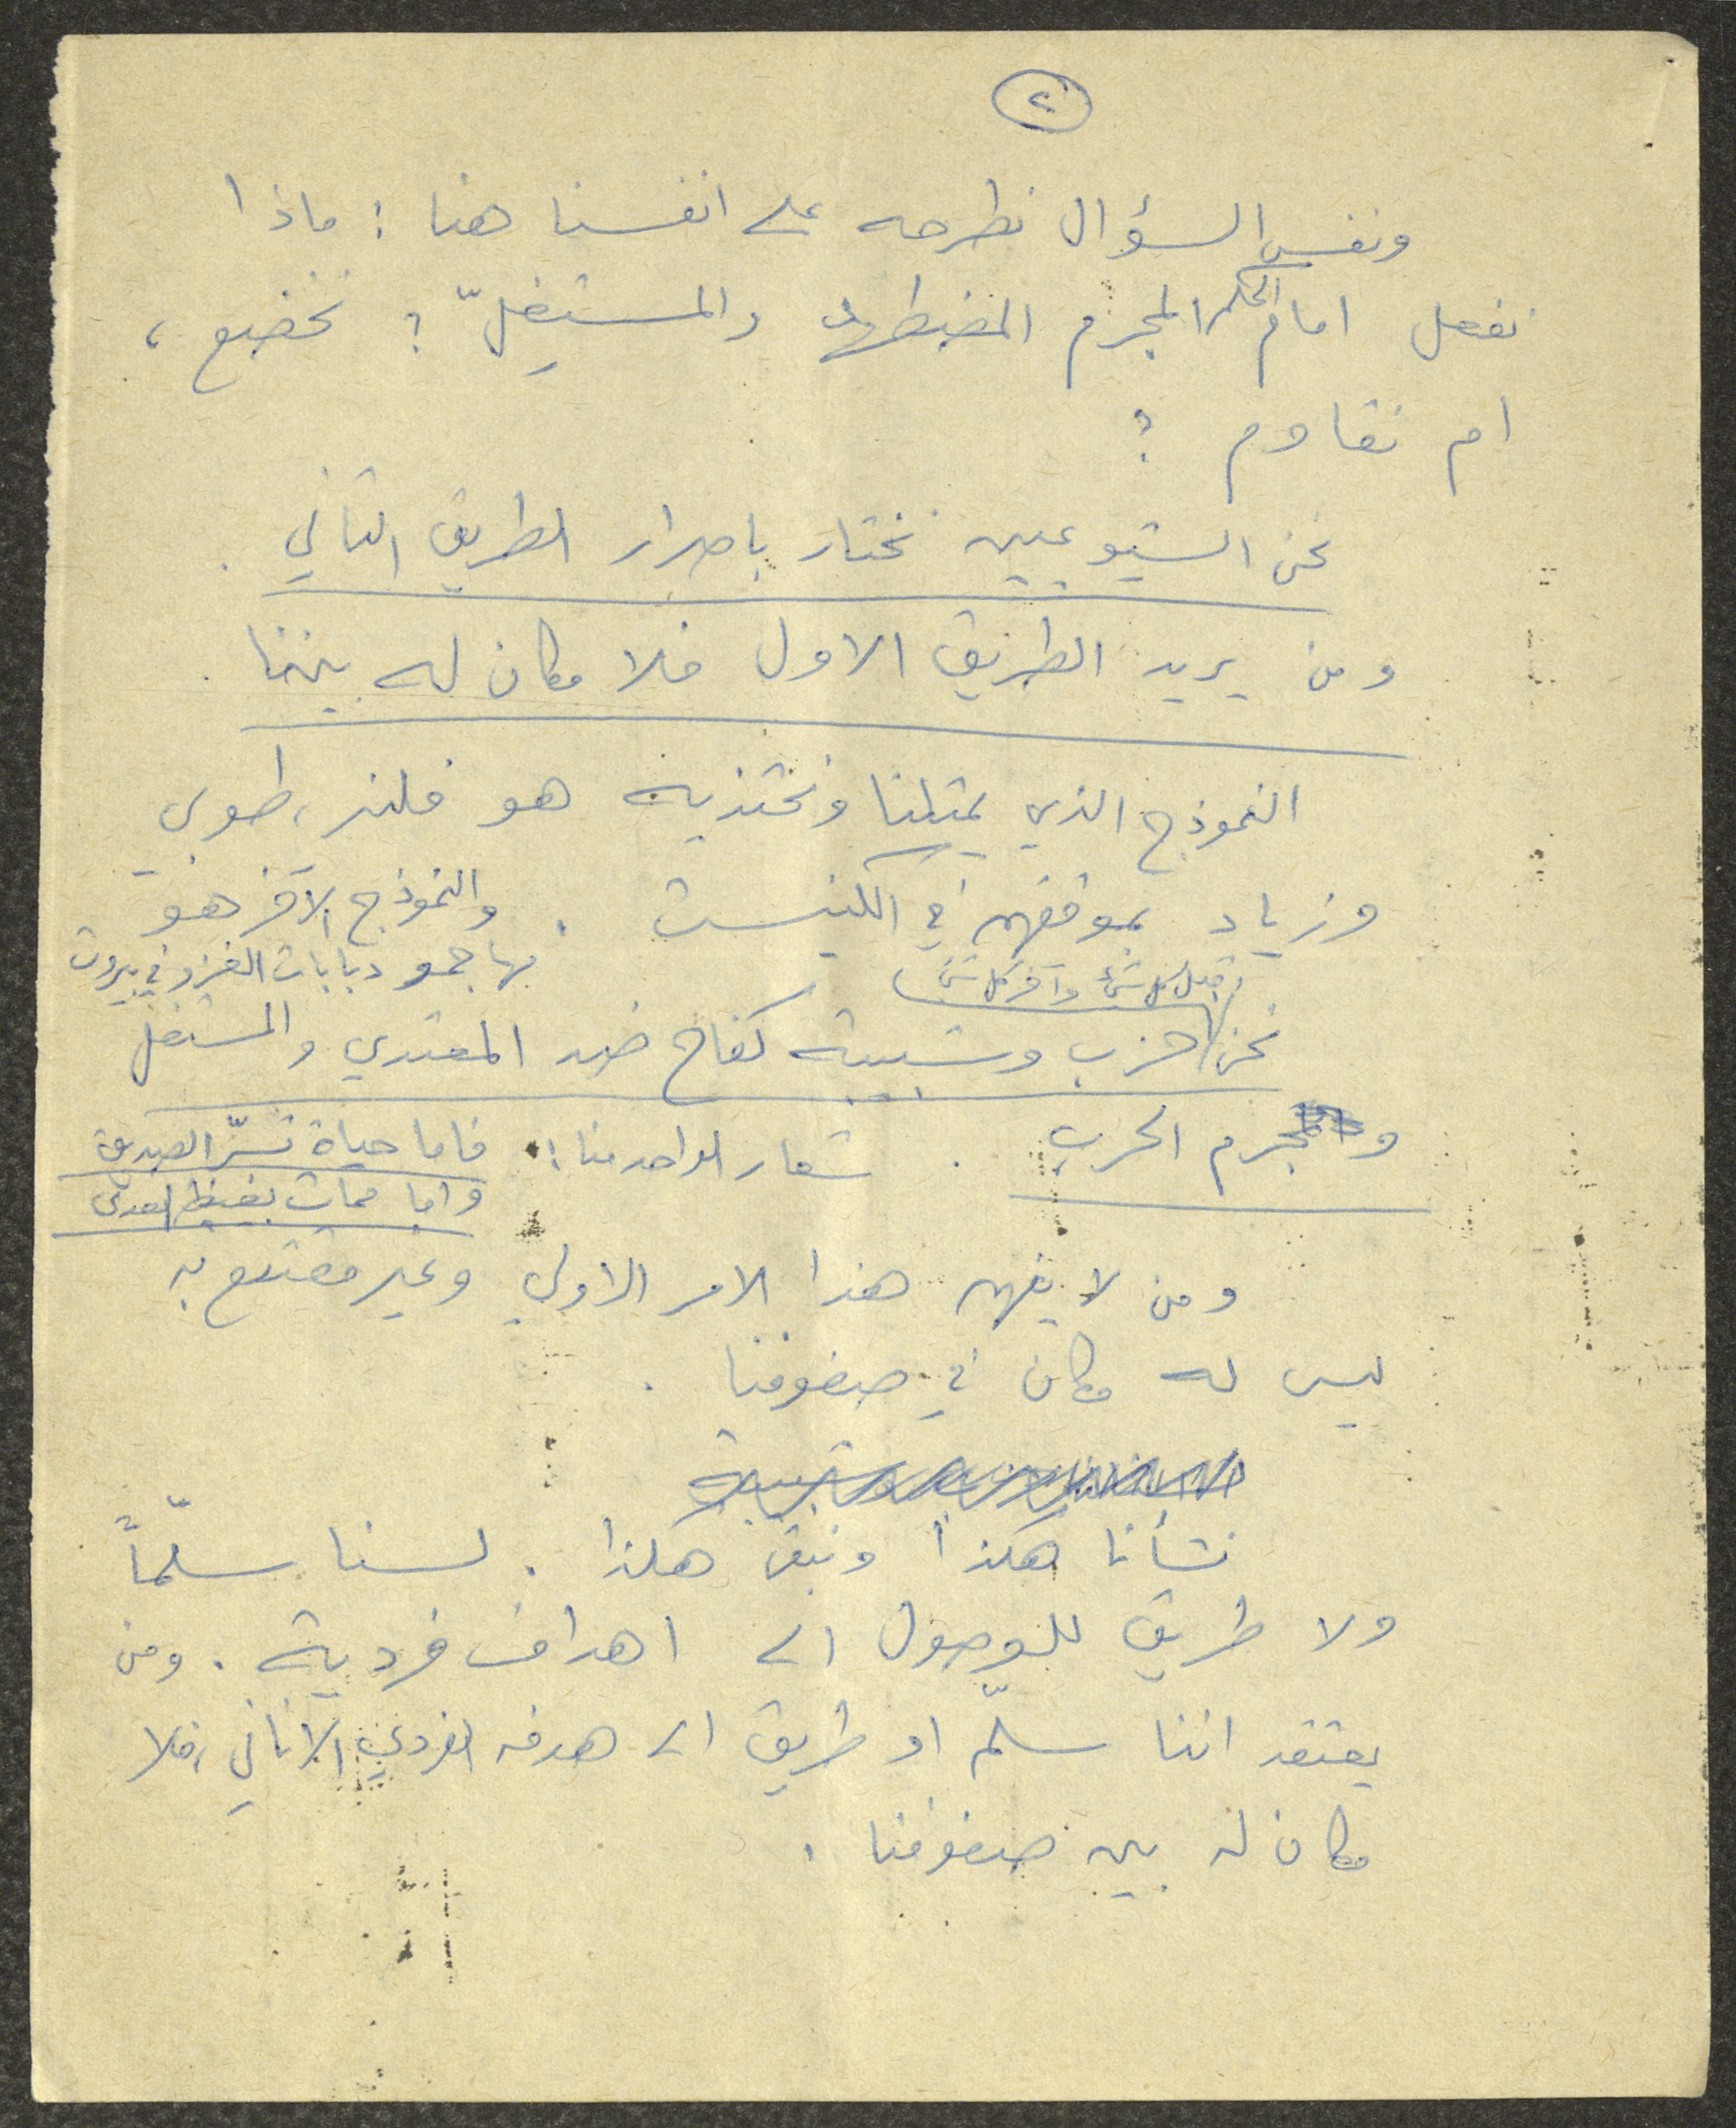 ٢
ونفس السؤال نطرحه على انفسنا هنا : ماذا
نفعل امام الحكم المجرم المضطهد والمستغلّ ؟ نخضع ،
ام نقاوم ؟
نحن الشيوعيين نختار باصرار الطريق الثاني .
ومن يريد الطريق الاول فلا مكان له بيننا .
النموذج الذي يمثلنا ونحتذيه هو فلنر، طوبي
وزياد بموقفهم في الكنيست . والنموذج الآخر هو
مهاجمو دبابات الغزو في بيروت
قبل كل شيء وآخر كل شيء
نحن حزب وشبيبة كفاح ضد المعتدي والمستغل
ومجرم الحرب . شعار الواحد منا : فاما حياة تسرّ الصديق
واما ممات يغيظ العدى
ومن لا يفهم هذا الامر الاولي وغير مقتنع به
ليس له مكان في صفوفنا .
نشأنا هكذا ونبقى هكذا . لسنا سلّماً
ولا طريق للوصول الى اهداف فردية . ومن
يعتقد اننا سلّم او طريق الى هدفه الفردي الاناني ، فلا
مكان له بين صفوفنا .